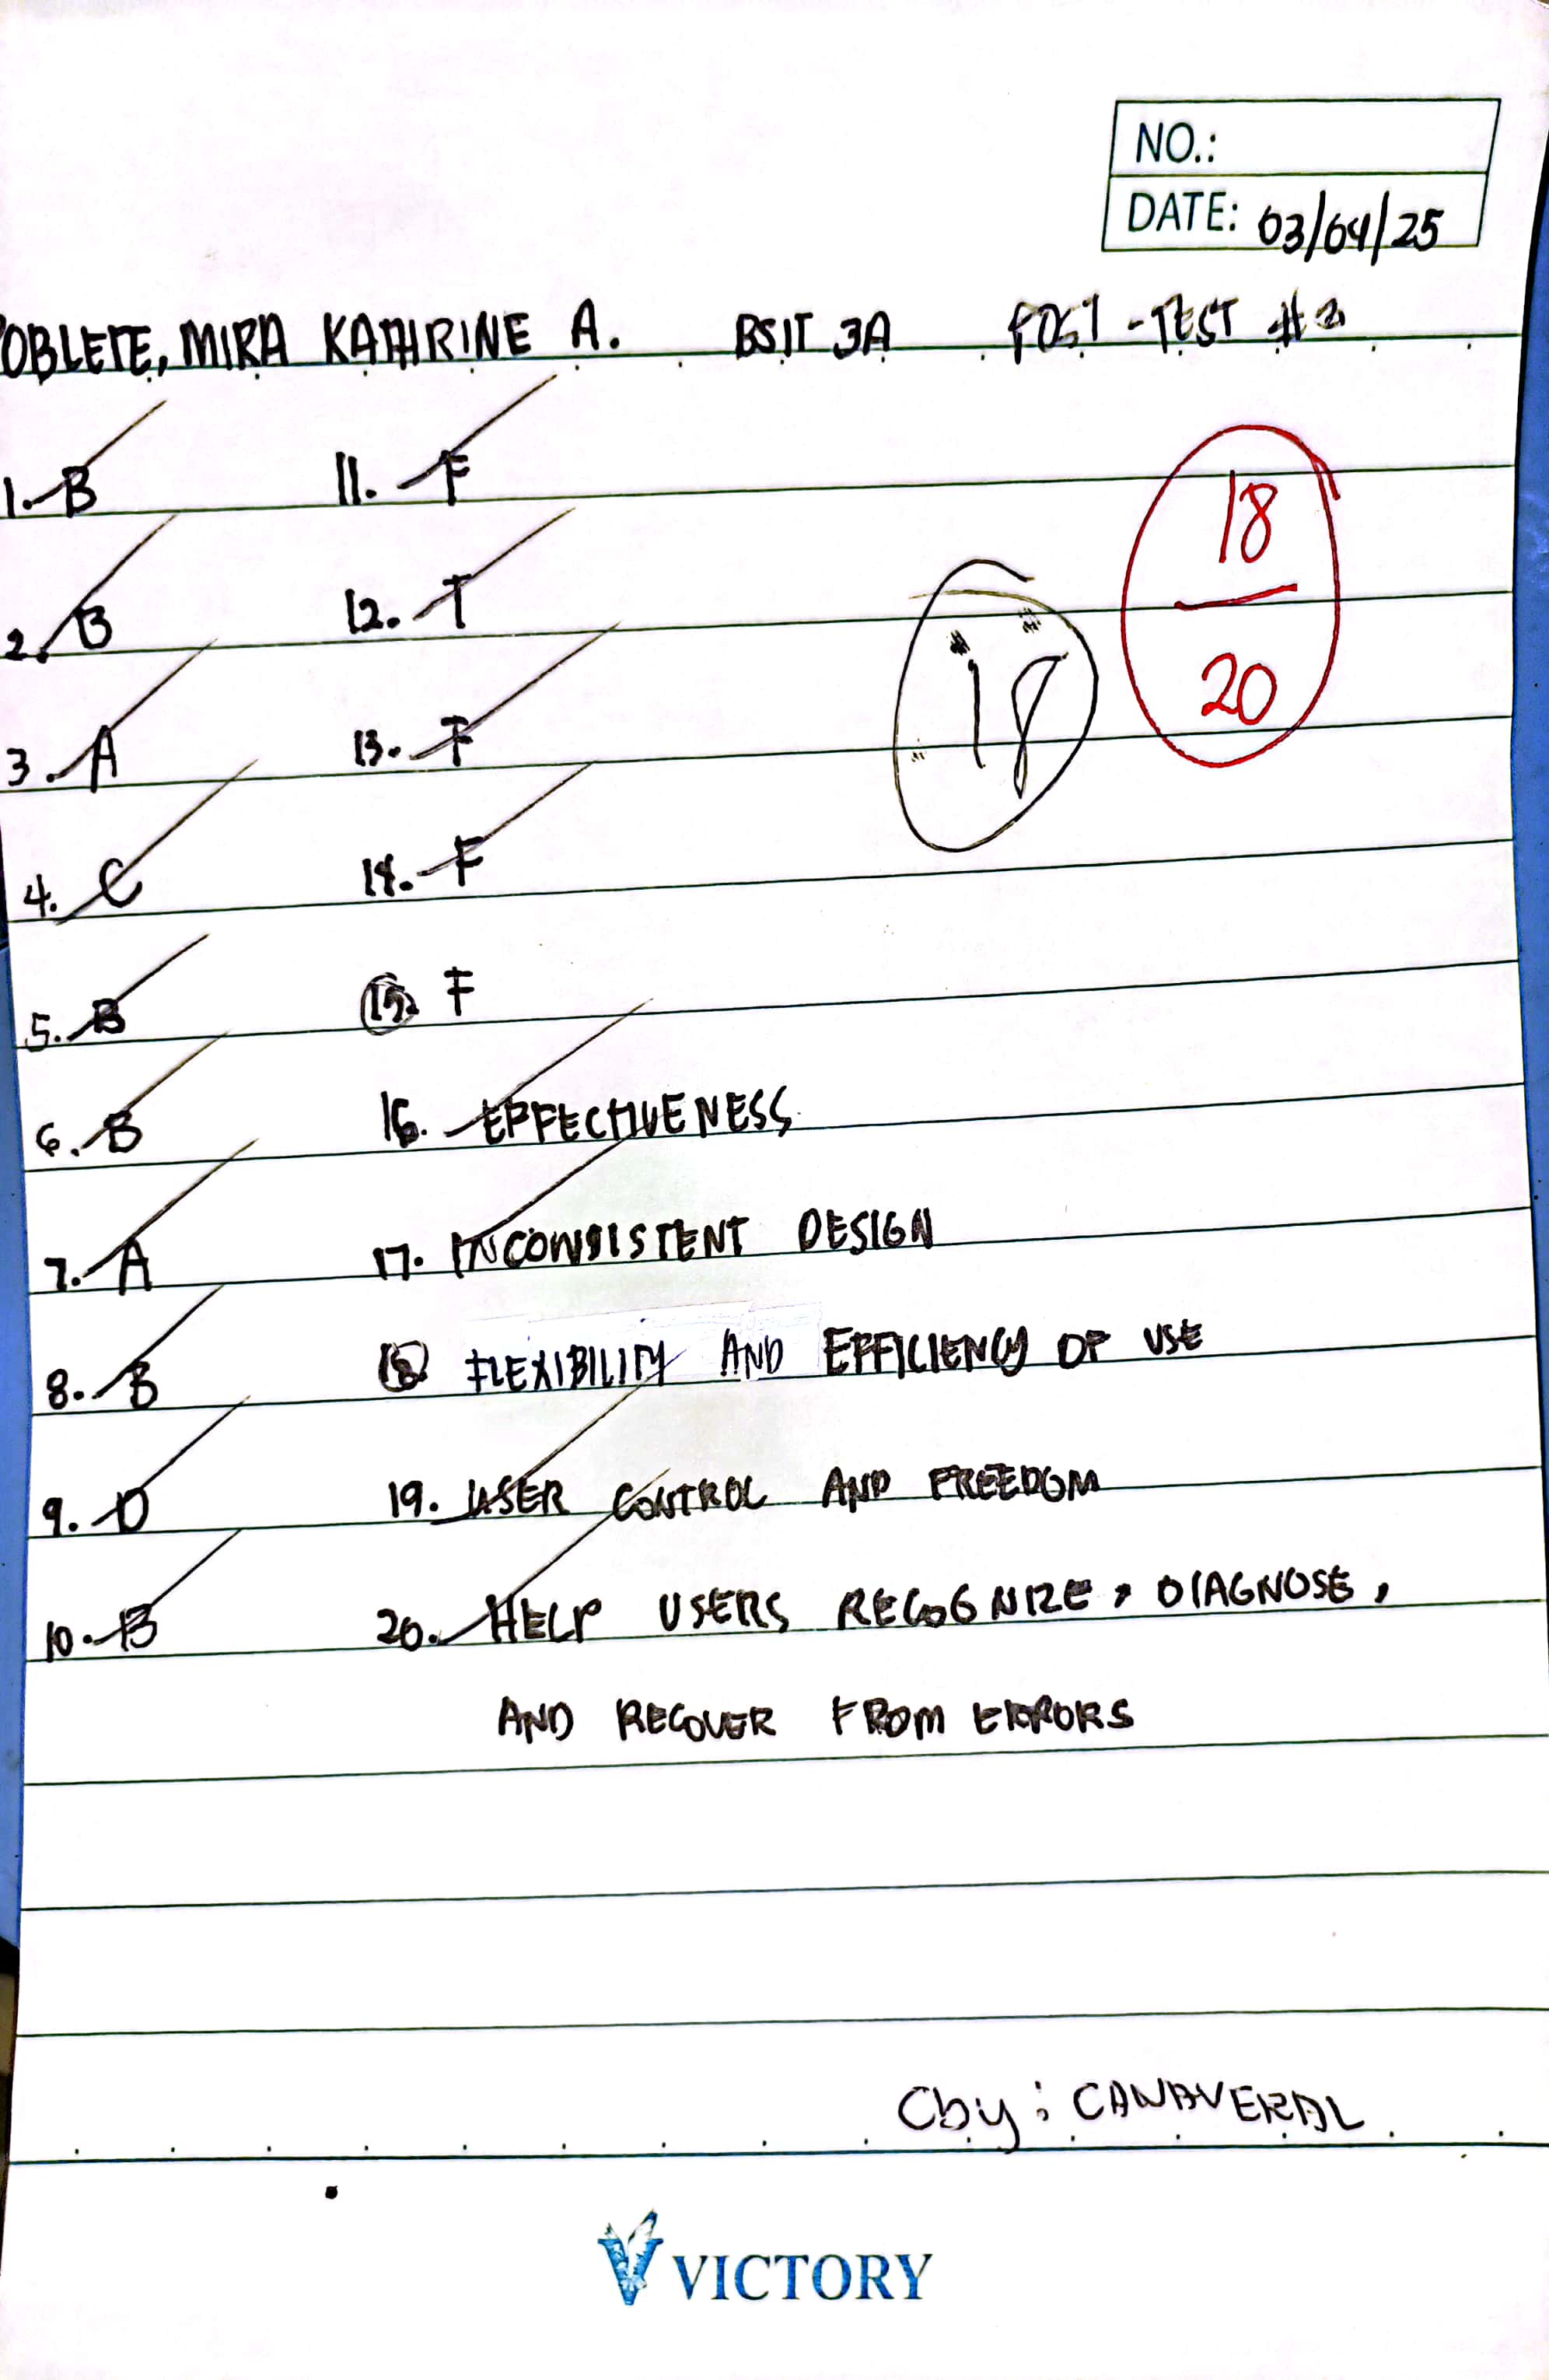 NO.:
DATE: 03/04/25
POBLETE, MIRA KATHRINE A. BSIT 3A POST-TEST #2
1. B
2. B
3. A
4. C
5. B
6. B
7. A
8. B
9. D
10. B
11. F
12. T
13. F
14. F
15. F
16. EFFECTIVENESS
17. INCONSISTENT DESIGN
18. FLEXIBILITY AND EFFICIENCY OF USE
19. USER CONTROL AND FREEDOM
20. HELP USERS RECOGNIZE, DIAGNOSE,
AND RECOVER FROM ERRORS
18
18
20
Cby: CANAVERAL
VICTORY